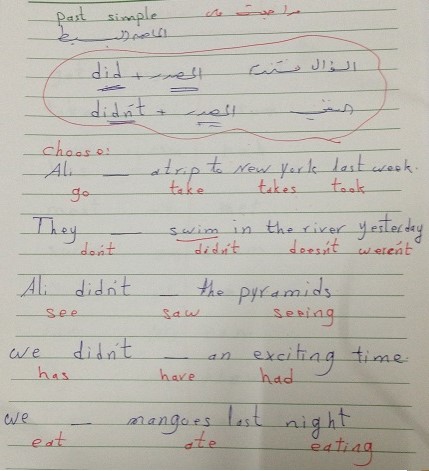 past simple مراجعة
الماضى البسيط
did + المصدر السؤال
didn't + المصدر النفى
choose:
Ali ___ a trip to New York last week.
go take takes took
They ___ swim in the river yesterday
don't didn't doesn't weren't
Ali didn't ___ the pyramids
see saw seeing
we didn't ___ an exciting time.
has have had
we ___ mangoes last night
eat ate eating